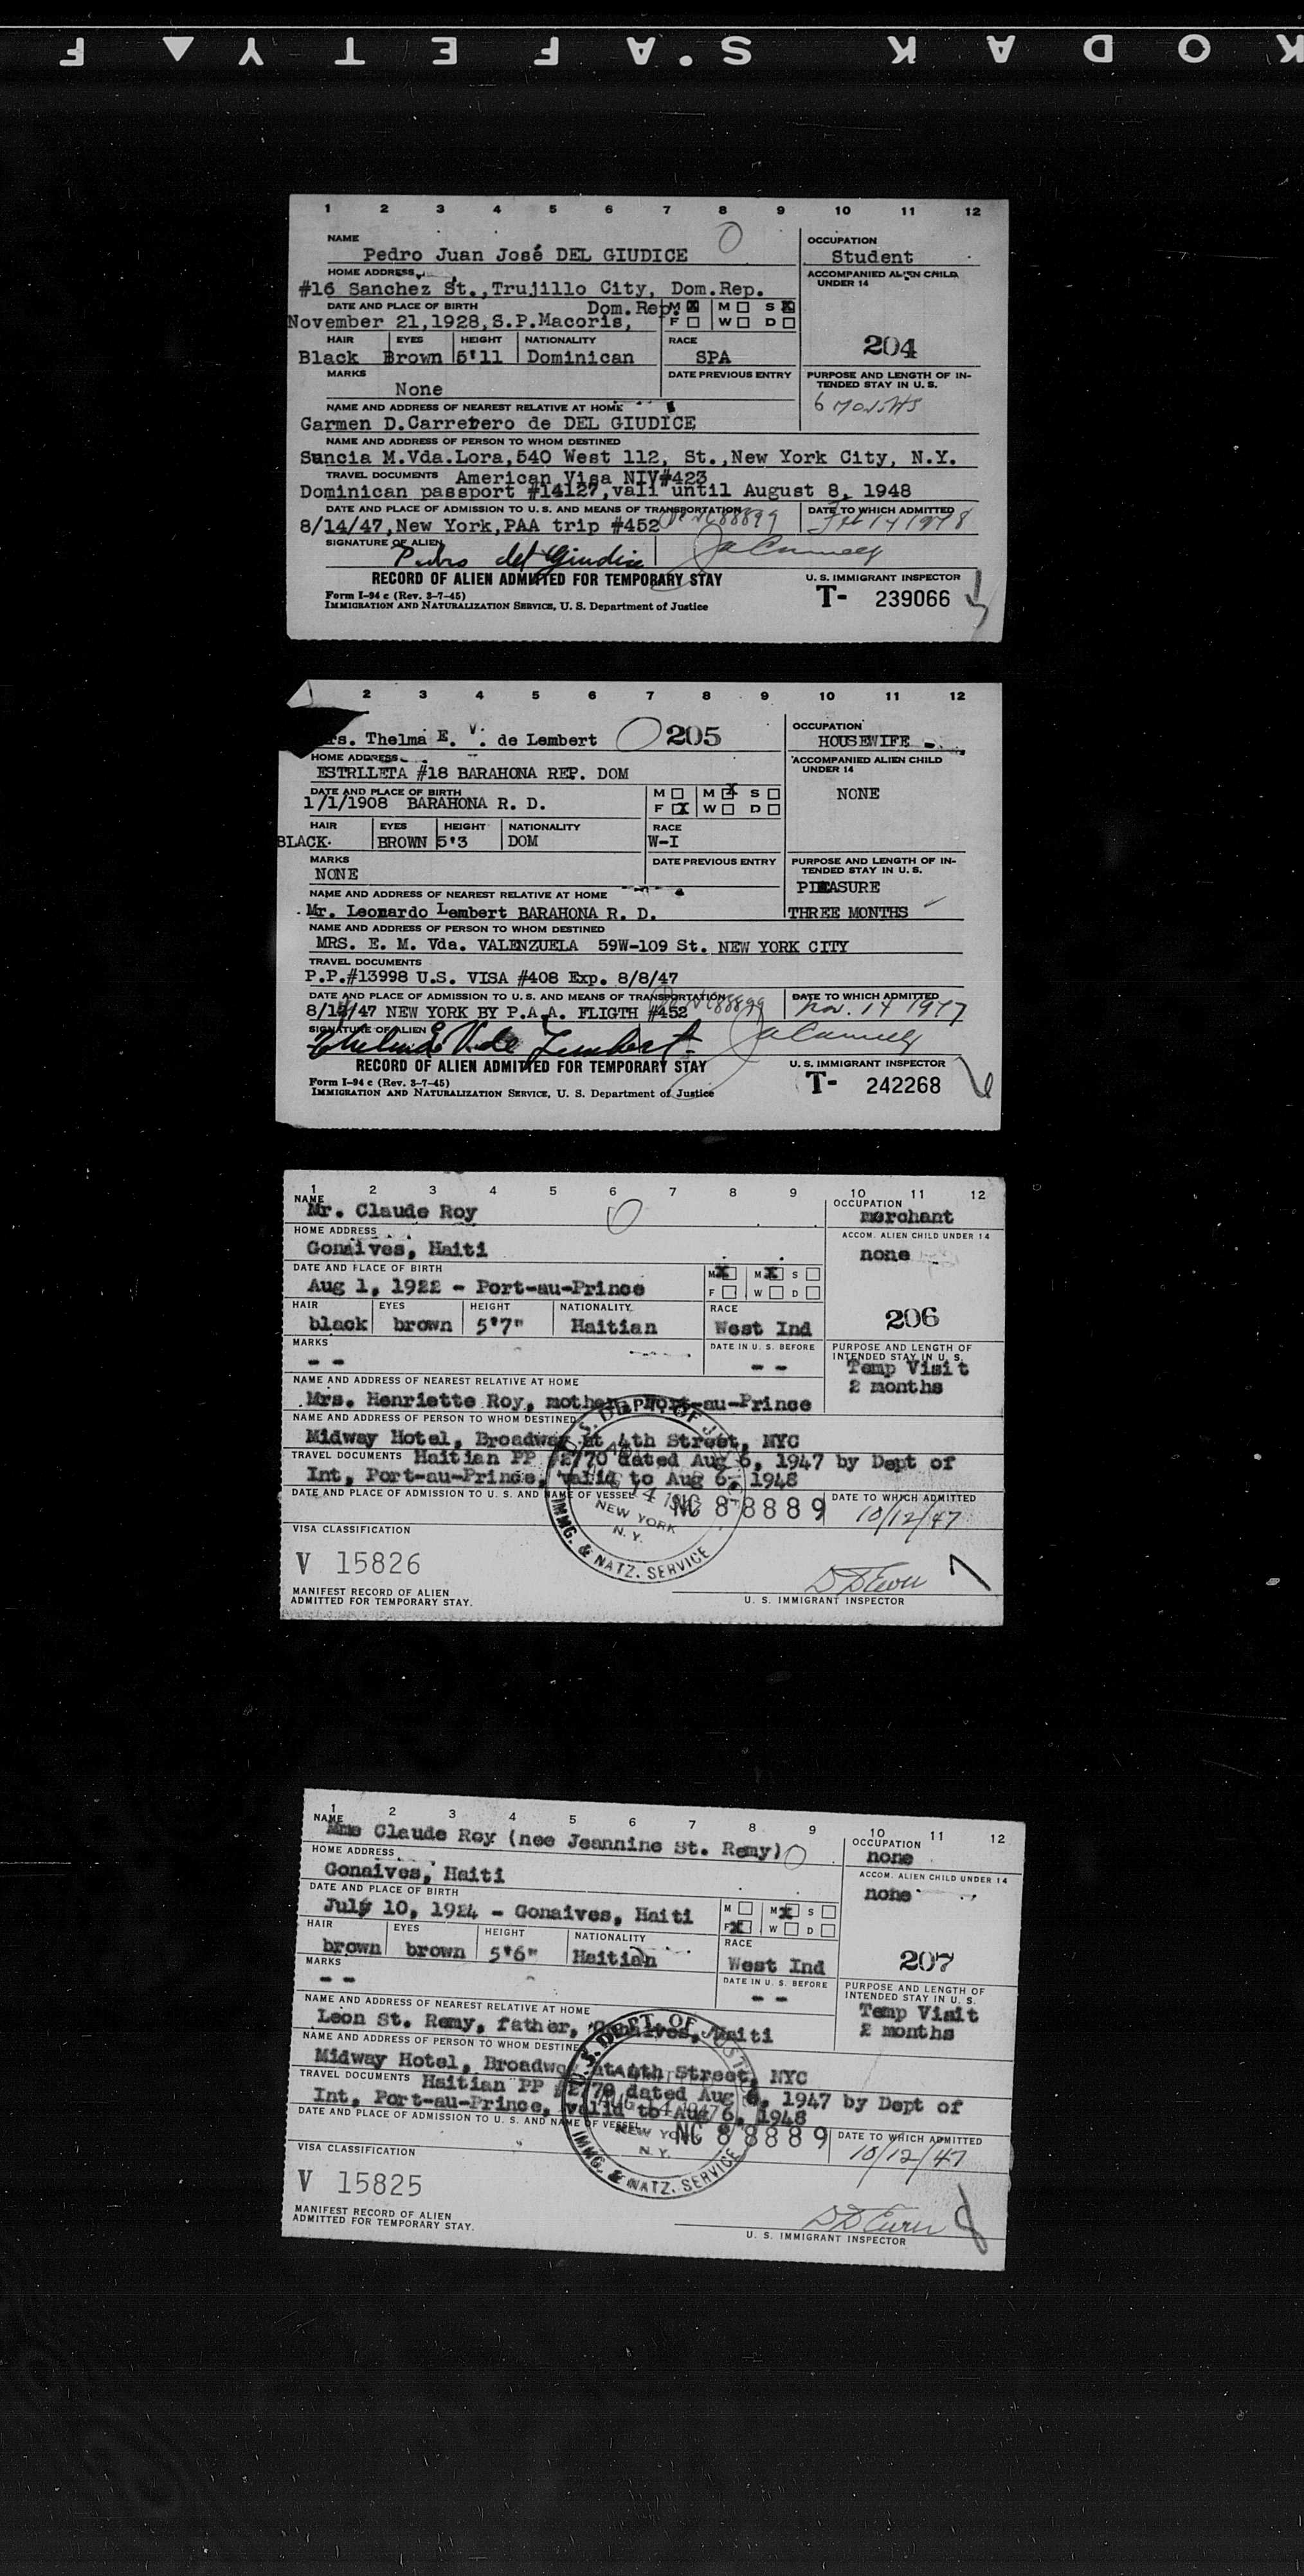 KODAK SAFETY
1 2 3 4 5 6 7 8 9 10 11 12
NAME
Pedro Juan José DEL GIUDICE
OCCUPATION
Student
HOME ADDRESS
#16 Sanchez St.,Trujillo City, Dom.Rep.
ACCOMPANIED ALIEN CHILD UNDER 14
DATE AND PLACE OF BIRTH
November 21,1928,S.P.Macoris, Dom.Rep.
M F M W S D
204
HAIR EYES HEIGHT NATIONALITY RACE
Black Brown 5'11 Dominican SPA
MARKS
None
DATE PREVIOUS ENTRY
PURPOSE AND LENGTH OF INTENDED STAY IN U. S.
6 MONTHS
NAME AND ADDRESS OF NEAREST RELATIVE AT HOME
Garmen D.Carretero de DEL GIUDICE
NAME AND ADDRESS OF PERSON TO WHOM DESTINED
Suncia M.Vda.Lora,540 West 112, St.,New York City, N.Y.
TRAVEL DOCUMENTS American Visa NIV#423
Dominican passport #14127,vali until August 8, 1948
DATE AND PLACE OF ADMISSION TO U. S. AND MEANS OF TRANSPORTATION
8/14/47,New York,PAA trip #452 NC88899
DATE TO WHICH ADMITTED
Feb 14 1948
SIGNATURE OF ALIEN
Pedro del Giudice
RECORD OF ALIEN ADMITTED FOR TEMPORARY STAY
U. S. IMMIGRANT INSPECTOR
Form I-94 c (Rev. 3-7-45)
IMMIGRATION AND NATURALIZATION SERVICE, U. S. Department of Justice
T- 239066
2 3 4 5 6 7 8 9 10 11 12
Thelma E. V. de Lembert
205
OCCUPATION
HOUSEWIFE
HOME ADDRESS
ESTRLLETA #18 BARAHONA REP. DOM
ACCOMPANIED ALIEN CHILD UNDER 14
NONE
DATE AND PLACE OF BIRTH
1/1/1908 BARAHONA R. D.
M F M W S D
HAIR EYES HEIGHT NATIONALITY RACE
BLACK BROWN 5'3 DOM W-I
MARKS
NONE
DATE PREVIOUS ENTRY
PURPOSE AND LENGTH OF INTENDED STAY IN U. S.
PLEASURE
THREE MONTHS
NAME AND ADDRESS OF NEAREST RELATIVE AT HOME
Mr. Leonardo Lembert BARAHONA R. D.
NAME AND ADDRESS OF PERSON TO WHOM DESTINED
MRS. E. M. Vda. VALENZUELA 59W-109 St. NEW YORK CITY
TRAVEL DOCUMENTS
P.P.#13998 U.S. VISA #408 Exp. 8/8/47
DATE AND PLACE OF ADMISSION TO U. S. AND MEANS OF TRANSPORTATION
8/14/47 NEW YORK BY P.A.A. FLIGTH #452 NC88899
DATE TO WHICH ADMITTED
Nov. 14 1947
SIGNATURE OF ALIEN
Thelma E V. de Lembert
RECORD OF ALIEN ADMITTED FOR TEMPORARY STAY
U. S. IMMIGRANT INSPECTOR
Form I-94 c (Rev. 3-7-45)
IMMIGRATION AND NATURALIZATION SERVICE, U. S. Department of Justice
T- 242268
1 2 3 4 5 6 7 8 9 10 11 12
NAME
Mr. Claude Roy
OCCUPATION
merchant
HOME ADDRESS
Gonaives, Haiti
ACCOM. ALIEN CHILD UNDER 14
none
DATE AND PLACE OF BIRTH
Aug 1, 1922 - Port-au-Prince
M F M W S D
206
HAIR EYES HEIGHT NATIONALITY RACE
black brown 5'7" Haitian West Ind
MARKS
- -
DATE IN U. S. BEFORE
- -
PURPOSE AND LENGTH OF INTENDED STAY IN U. S.
Temp Visit
2 months
NAME AND ADDRESS OF NEAREST RELATIVE AT HOME
Mrs. Henriette Roy, mother, Port-au-Prince
NAME AND ADDRESS OF PERSON TO WHOM DESTINED
Midway Hotel, Broadway at 4th Street, NYC
TRAVEL DOCUMENTS Haitian PP #2770 dated Aug 6, 1947 by Dept of
Int, Port-au-Prince, valid to Aug 6, 1948
DATE AND PLACE OF ADMISSION TO U. S. AND NAME OF VESSEL
NC 88889
DATE TO WHICH ADMITTED
10/12/47
U.S. DEPT. OF JUSTICE
NEW YORK
N. Y.
IMMG. & NATZ. SERVICE
VISA CLASSIFICATION
V 15826
MANIFEST RECORD OF ALIEN
ADMITTED FOR TEMPORARY STAY.
U. S. IMMIGRANT INSPECTOR
1 2 3 4 5 6 7 8 9 10 11 12
NAME
Mme Claude Roy (nee Jeannine St. Remy)
OCCUPATION
none
HOME ADDRESS
Gonaives, Haiti
ACCOM. ALIEN CHILD UNDER 14
none
DATE AND PLACE OF BIRTH
July 10, 1924 - Gonaives, Haiti
M F M W S D
207
HAIR EYES HEIGHT NATIONALITY RACE
brown brown 5'6" Haitian West Ind
MARKS
- -
DATE IN U. S. BEFORE
- -
PURPOSE AND LENGTH OF INTENDED STAY IN U. S.
Temp Visit
2 months
NAME AND ADDRESS OF NEAREST RELATIVE AT HOME
Leon St. Remy, father, Gonaives, Haiti
NAME AND ADDRESS OF PERSON TO WHOM DESTINED
Midway Hotel, Broadway at 4th Street, NYC
TRAVEL DOCUMENTS Haitian PP #2770 dated Aug 6, 1947 by Dept of
Int, Port-au-Prince, valid to Aug 6, 1948
DATE AND PLACE OF ADMISSION TO U. S. AND NAME OF VESSEL
NC 88889
DATE TO WHICH ADMITTED
10/12/47
U.S. DEPT. OF JUSTICE
NEW YORK
N. Y.
IMMG. & NATZ. SERVICE
VISA CLASSIFICATION
V 15825
MANIFEST RECORD OF ALIEN
ADMITTED FOR TEMPORARY STAY.
U. S. IMMIGRANT INSPECTOR